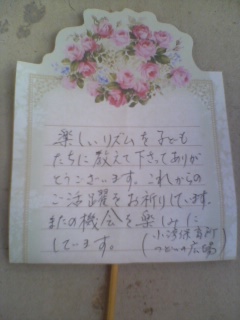 楽しいリズムを子ども
たちに教えて下さってありが
とうございます。これからの
ご活躍をお祈りしています。
またの機会を楽しみに
しています。
(小湊保育所
の広場)